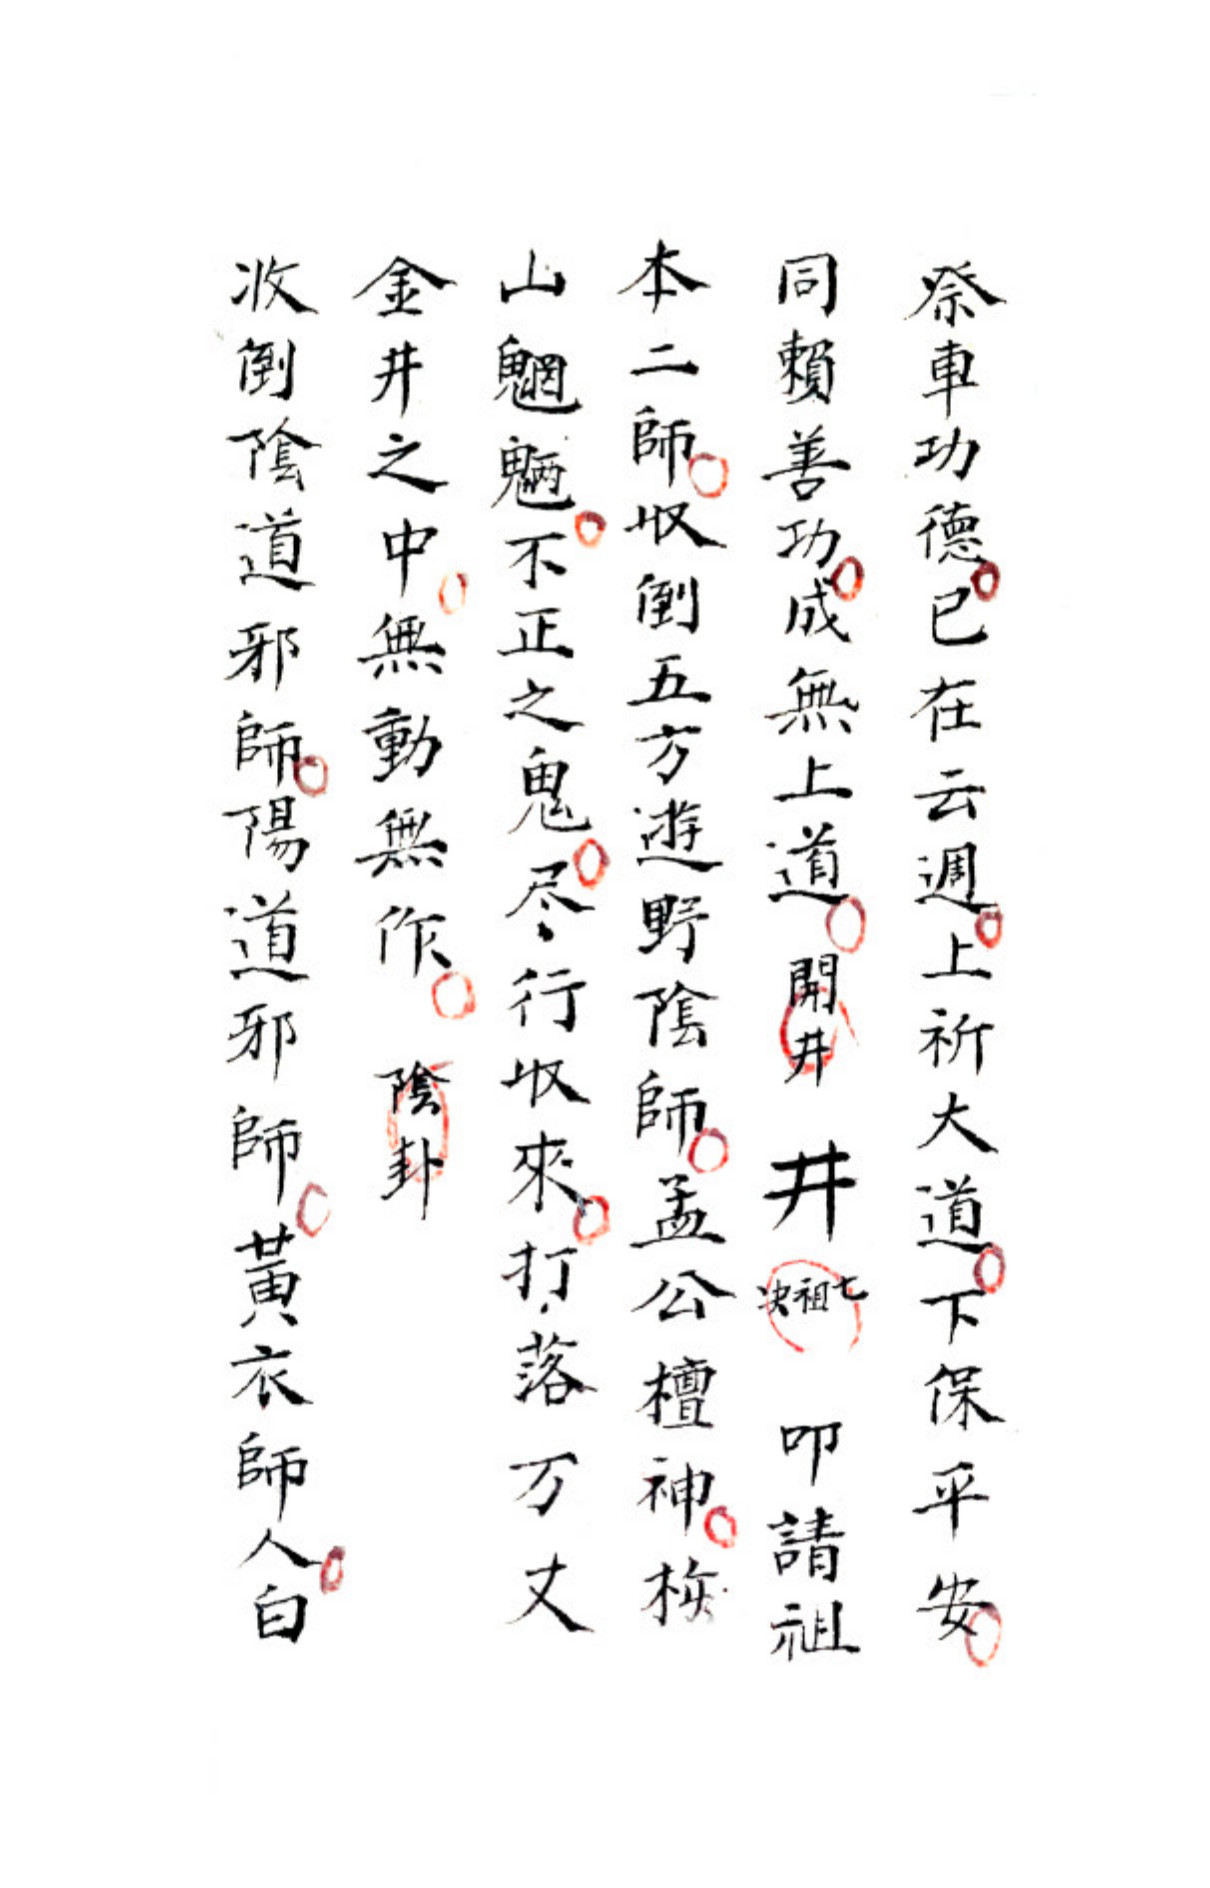 祭車功德已在云週上祈大道下保平安
同賴善功成無上道開井 井 七祖决 叩請祖
本二師收倒五方遊野陰師孟公檀神
山魍魎不正之鬼尽行收來打落万丈
金井之中無動無作 陰卦
收倒陰道邪師陽道邪師黃衣師人白